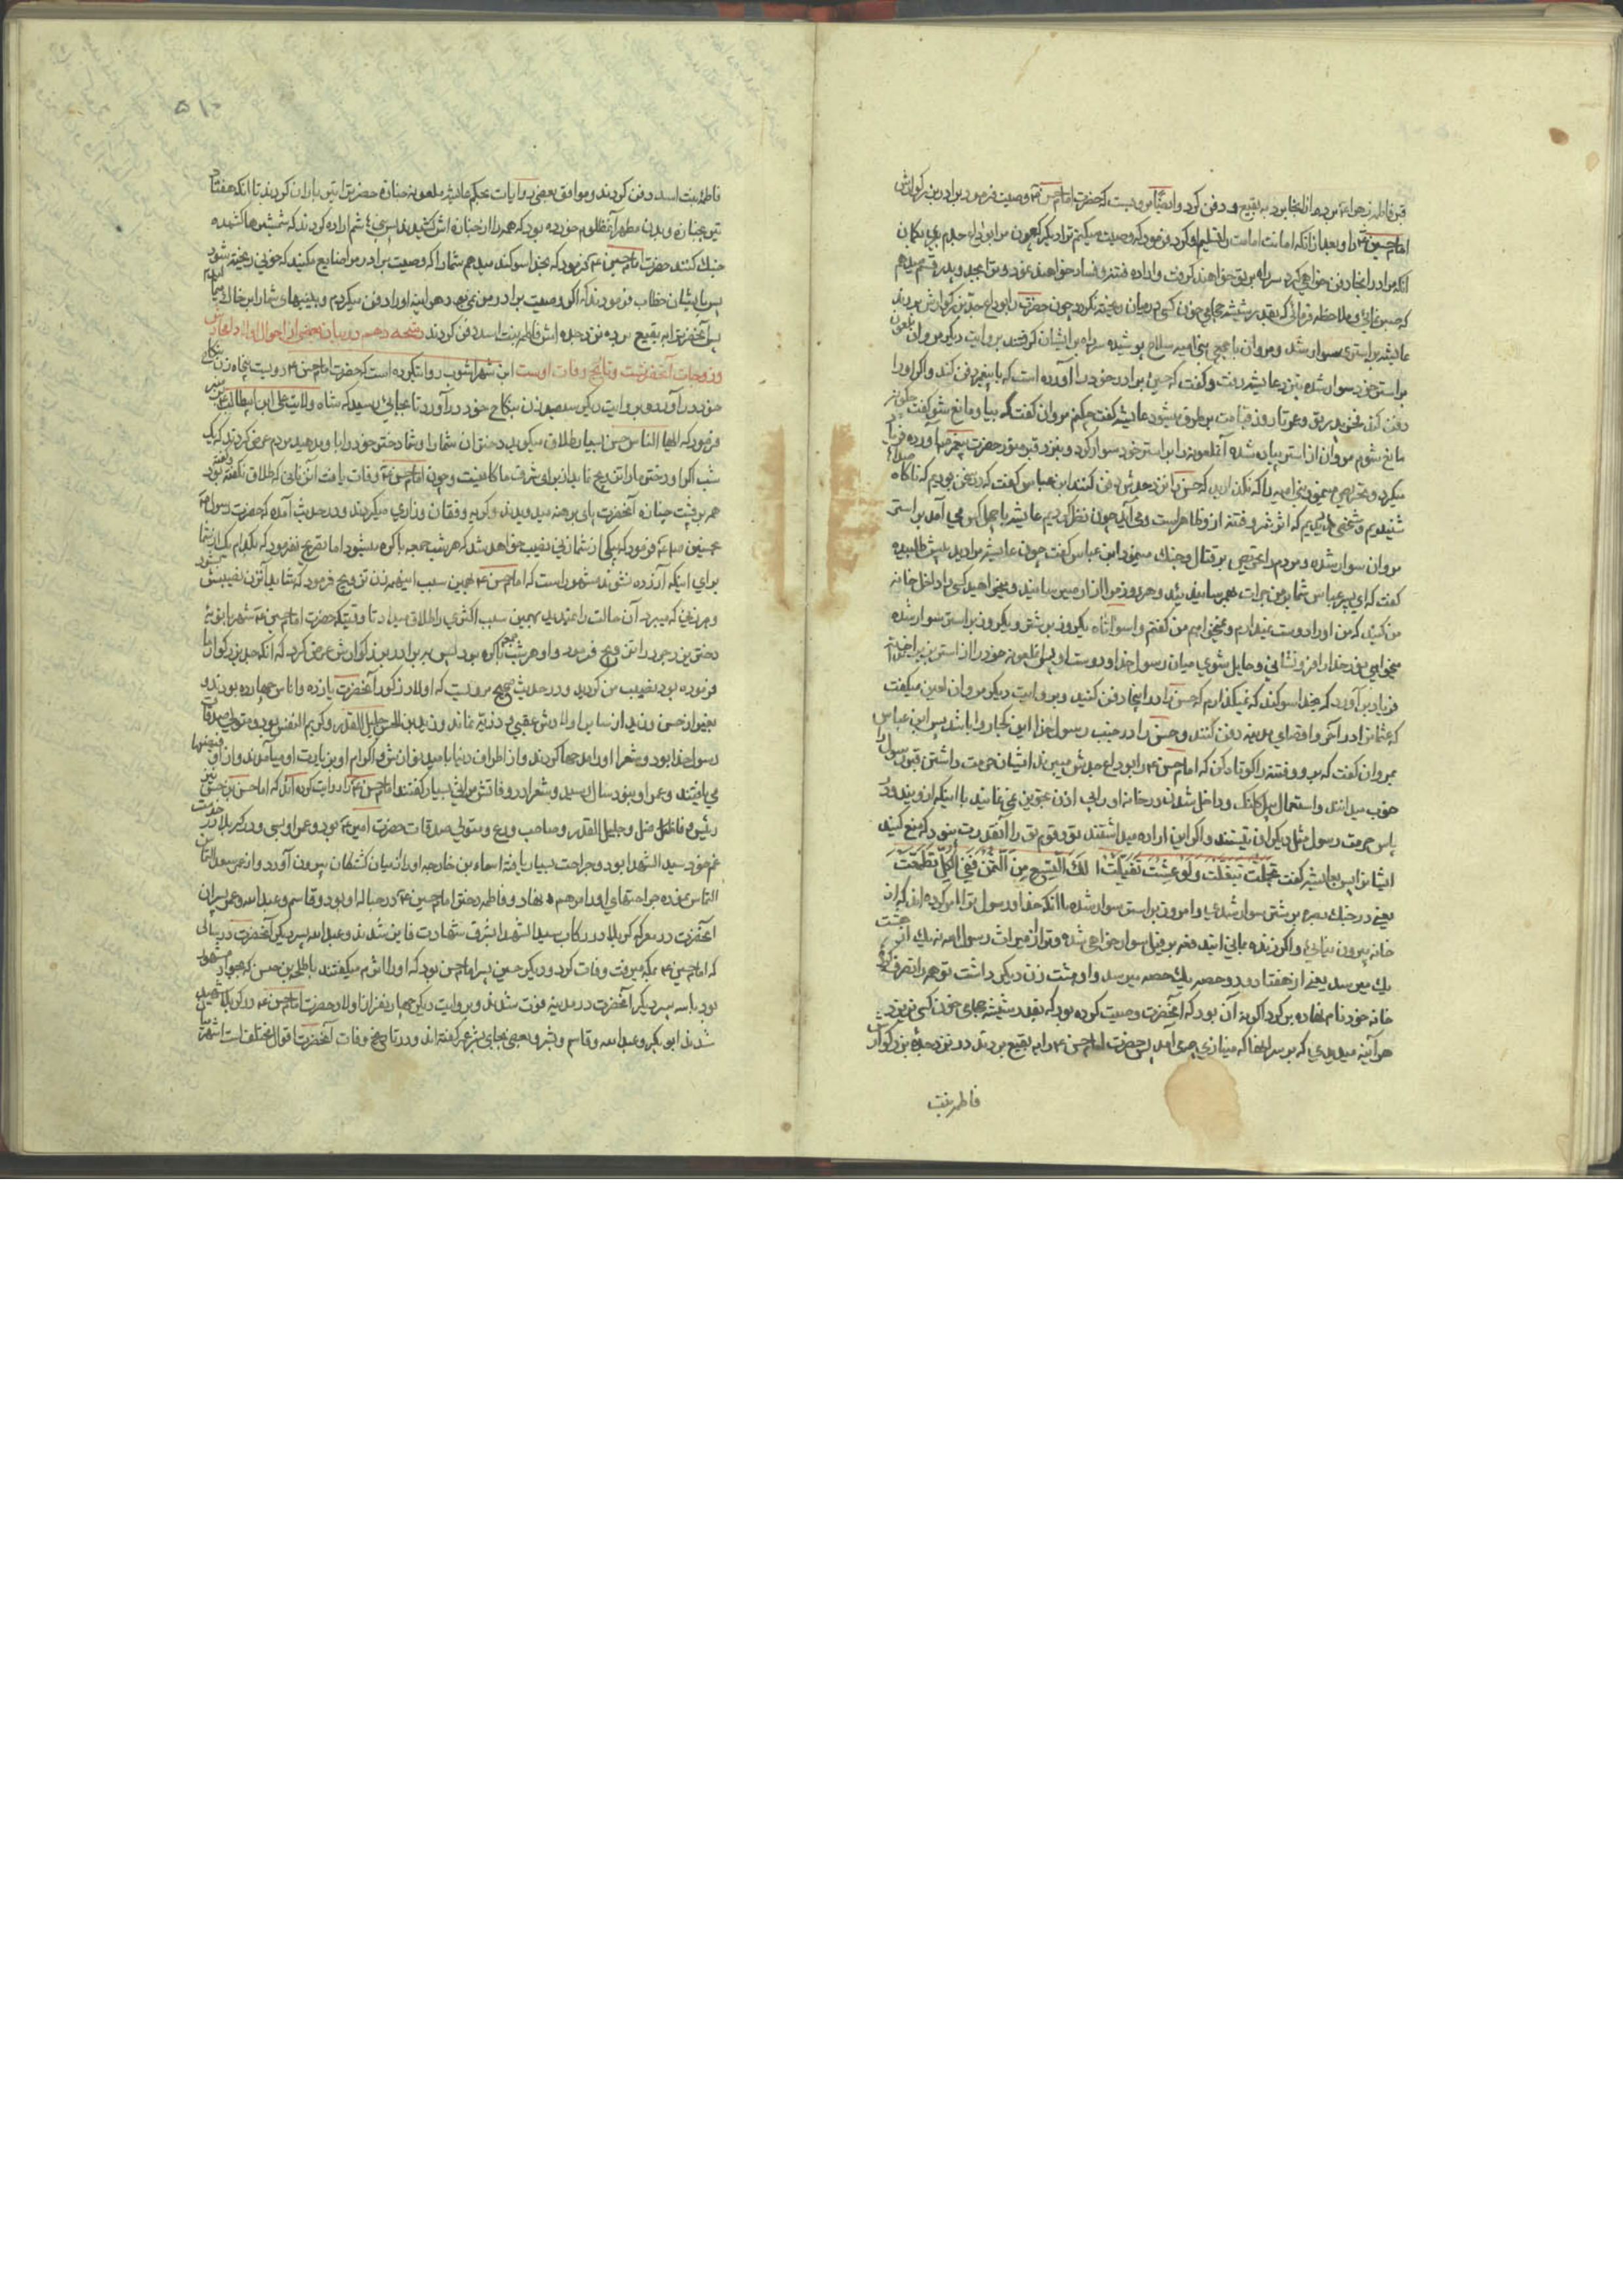 قبر فاطمه زهرا ع برده از انجا برد به بقیع و دفن کرد و ایضاً مرویست که حضرت امام حسن ع وصیت فرمود برادر بزرگوارش
امام حسین ع را و بعد از انکه امانت امامت را تسلیم او کرد فرمود که وصیت میکنم ترا دیگر که چون مرا بری
انکه مرا در انجا دفن خواهی کرد سر راه بر تو خواهند گرفت و اراده فتنه و فساد خواهند نمود و ترا بجد و پدر قسم میدهم
که بقدر شیشه حجامی خون کسی در میان ریخته نگردد چون حضرت را بوداع جد بزرگوارش بردند
عایشه بر استری سوار شد و مروان با جمیع بنی امیه سلاح پوشیده سر راه بر ایشان گرفتند بروایت دیگر مروان ملعون
بر استر خود سوار شده بنزد عایشه رفت و گفت که حسین برادر خود را آورده است که با پیغمبر دفن کند و اگر او را
دفن کند فخر پدر تو و عمر تا روز قیامت بر طرف میشود عایشه گفت چکنم مروان گفت که بیا و مانع شو گفت چگونه
مانع شوم مروان از استر پیاده شده آنملعونه را بر استر خود سوار کرد و بنزد قبر منور حضرت پیغمبر ص آورده فریاد
میکرد و تحریص مینمود بنی امیه را که مگذارید که حسن را نزد جدش دفن کنند ابن عباس گفت که در سخن بودیم که ناگاه صداها
شنیدیم و شخصی را دیدیم که اثر شر و فتنه از و ظاهر است و می آید چون نظر کردیم عایشه با چهل کس می آمد بر استر
مروان سوار شده و مردم را تحریص بر قتال و جنگ مینمود ابن عباس گفت چون عایشه مرا دید پیش طلبیده
گفت که ای پسر عباس شما بر من جرات بهم رسانیده اید و هر روز مرا ازار میرسانید و میخواهید کسی را داخل خانه
من کنید که من او را دوست نمیدارم و نمیخواهم من گفتم وا سوأتاه یکروز بر شتر و یکروز بر استر سوار شده
میخواهی نور خدا را فرو نشانی و حایل شوی میان رسول خدا و دوست او پس آنملعونه خود را از استر بزیر انداخته
فریاد بر آورد که بخدا سوگند که نمیگذارم که حسن را در اینجا دفن کنید و بروایت دیگر مروان لعین میگفت
که عثمان را در آخر و اقصای مدینه دفن کنند و حسن را در جنب رسول خدا این کجا روا باشد پس ابن عباس
بمروان گفت که برو و فتنه را کوتاه کن که امام حسن ع را بوداع جدش میبرند ایشان حرمت داشتن قبر رسول را
خوب میدانند و استعمال بیل و کلنگ و داخل شدن در خانه او را بی اذن تجویز نمی نمایند با اینکه از فرزندان
پاس حرمت رسول مثل دیگران نیستند و اگر این اراده میداشتند تو و قوم تو را آنقدرت نبود که منع کنید
ایشانرا پس بعایشه گفت تجملت تبغلت و لو عشت تفیلت لک التسع من الثمن ففی الکل تطمعت
یعنی در جنگ بصره بر شتر سوار شدی و امروز بر استر سوار شده با انکه خدا و رسول ترا امر کرده اند که از
خانه بیرون نیائی و اگر زنده بمانی البته فخر بر فیل سوار خواهی شد و ترا از میراث رسول الله نه یک از هشت
یک میرسد یعنی از هفتاد و دو حصه یک حصه میرسد و او هشت زن دیگر داشت تو همه را تصرف کرده
خانه خود نام نهاده بر کرد اگر نه آن بود که آنحضرت وصیت کرده بود که بقدر شیشه حجامی خون کسی نریزد
هر آینه میدیدی که بر سر انها که مینازی چه می آمد پس حضرت امام حسن ع را به بقیع بردند و در نزد جده بزرگوارش
فاطمه بنت
۵۱۰
فاطمه بنت اسد دفن کردند و موافق بعضی روایات بحکم عایشه ملعونه جنازه حضرت را تیر باران کردند تا انکه هفتاد
تیر بجنازه و بدن مطهر آنمظلوم خورده بود که همه را از جنازه اش کشیدند پس بنی هاشم اراده کردند که شمشیرها کشیده
جنگ کنند حضرت امام حسین ع فرمود که بخدا سوگند میدهم شما را که وصیت برادر مرا ضایع مکنید که خونی ریخته شود
پس بایشان خطاب فرمودند که اگر وصیت برادر من نمی بود هر اینه او را دفن میکردم و بینیهای شما را بر خاک میمالیدم
پس آنحضرت را به بقیع برده نزد جده اش فاطمه بنت اسد دفن کردند نفحه دهم در بیان بعضی از احوال اولاد امجاد
و زوجات آنحضرت و تاریخ وفات اوست ابن شهر اشوب روایت کرده است که حضرت امام حسن ع دویست پنجاه زن بنکاح
خود در آورد و بروایت دیگر سیصد زن بنکاح خود در آورد تا بجائی رسید که شاه ولایت علی ابن ابیطالب بر منبر
فرمود که ایها الناس حسن بسیار طلاق میگوید دختران شما را و شما دختر خود را باو مدهید مردم عرض کردند که یک
شب اگر او دختر ما را تزویج نماید از برای شرف ما کافیست و چون امام حسن ع وفات یافت آن زنانی که طلاق گفته بود
همه در پشت جنازه آنحضرت پای برهنه میدویدند و گریه و فغان و زاری میکردند و در حدیث آمده که حضرت رسول ص
بحسنین ع فرمود که یکی از شما زنی نصیب خواهد شد که هر شب جمعه باکره میشود اما تصریح نفرمود که بکدام یک از شما
برای اینکه آزرده نشوند مشهور است که امام حسن ع بهمین سبب اینهمه زن تزویج فرمود که شاید آنزن نصیبش شود
و هر زنی که میبرد آن حالت را نمیدید بهمین سبب اکثری را طلاق میداد تا وقتیکه حضرت امام حسین ع شهربانویه
دختر یزدجرد را تزویج فرمود و او هر شب جمعه باکره بود پس به برادر بزرگوارش عرض کرد که انکه جد بزرگوار ما
فرموده بود نصیب من گردید و در حدیث صحیح مرویست که اولاد ذکور آنحضرت پانزده و اناس چهارده بودند و
بغیر از حسن و زید از سایر اولادش عقبی و ذریه نماند و زید بن الحسن جلیل القدر و کریم النفس بود و متولی صدقات
رسول خدا بود و شعرا او را مدحها کردند و از اطراف دنیا بامید نوازش و اکرام او بزیارت او میآمدند و از او فیضها
می یافتند و عمر او بنود سال رسید و شعرا در وفاتش مراثی بسیار گفتند امام حسن ع را روایت کرده اند که اما حسن بن حسن
رئیس و فاضل و جلیل القدر و صاحب ورع و متولی صدقات حضرت امیر ع بود و عمر او بسی و در کربلا در خدمت
عم خود سید الشهدا بود و جراحت بسیار یافته اسماء بن خارجه او را از میان کشتگان بیرون آورد و از عمر سعد التماس
التماس نموده جراحتهای او را مرهم نهاد و فاطمه دختر امام حسین ع در حباله او بود و قاسم و عبد الله و عمر پسران
آنحضرت در معرکه کربلا در رکاب سید الشهدا بشرف شهادت فایز شدند و عبد الله پسر دیگر آنحضرت در سالی
که امام حسین ع بمکه میرفت وفات کرد و دیگر حسین پسر امام حسن بود که او را اثرم میگفتند با طلحه بن حسن که بجود مشهور
بود با سه پسر دیگر آنحضرت در مدینه فوت شدند و بروایت دیگر چهار نفر از اولاد حضرت امام حسن ع در کربلا شهید
شدند ابوبکر و عبد الله و قاسم و بشر و بعضی بجای بشر عمر گفته اند و در تاریخ وفات آنحضرت اقوال مختلف است اشهر